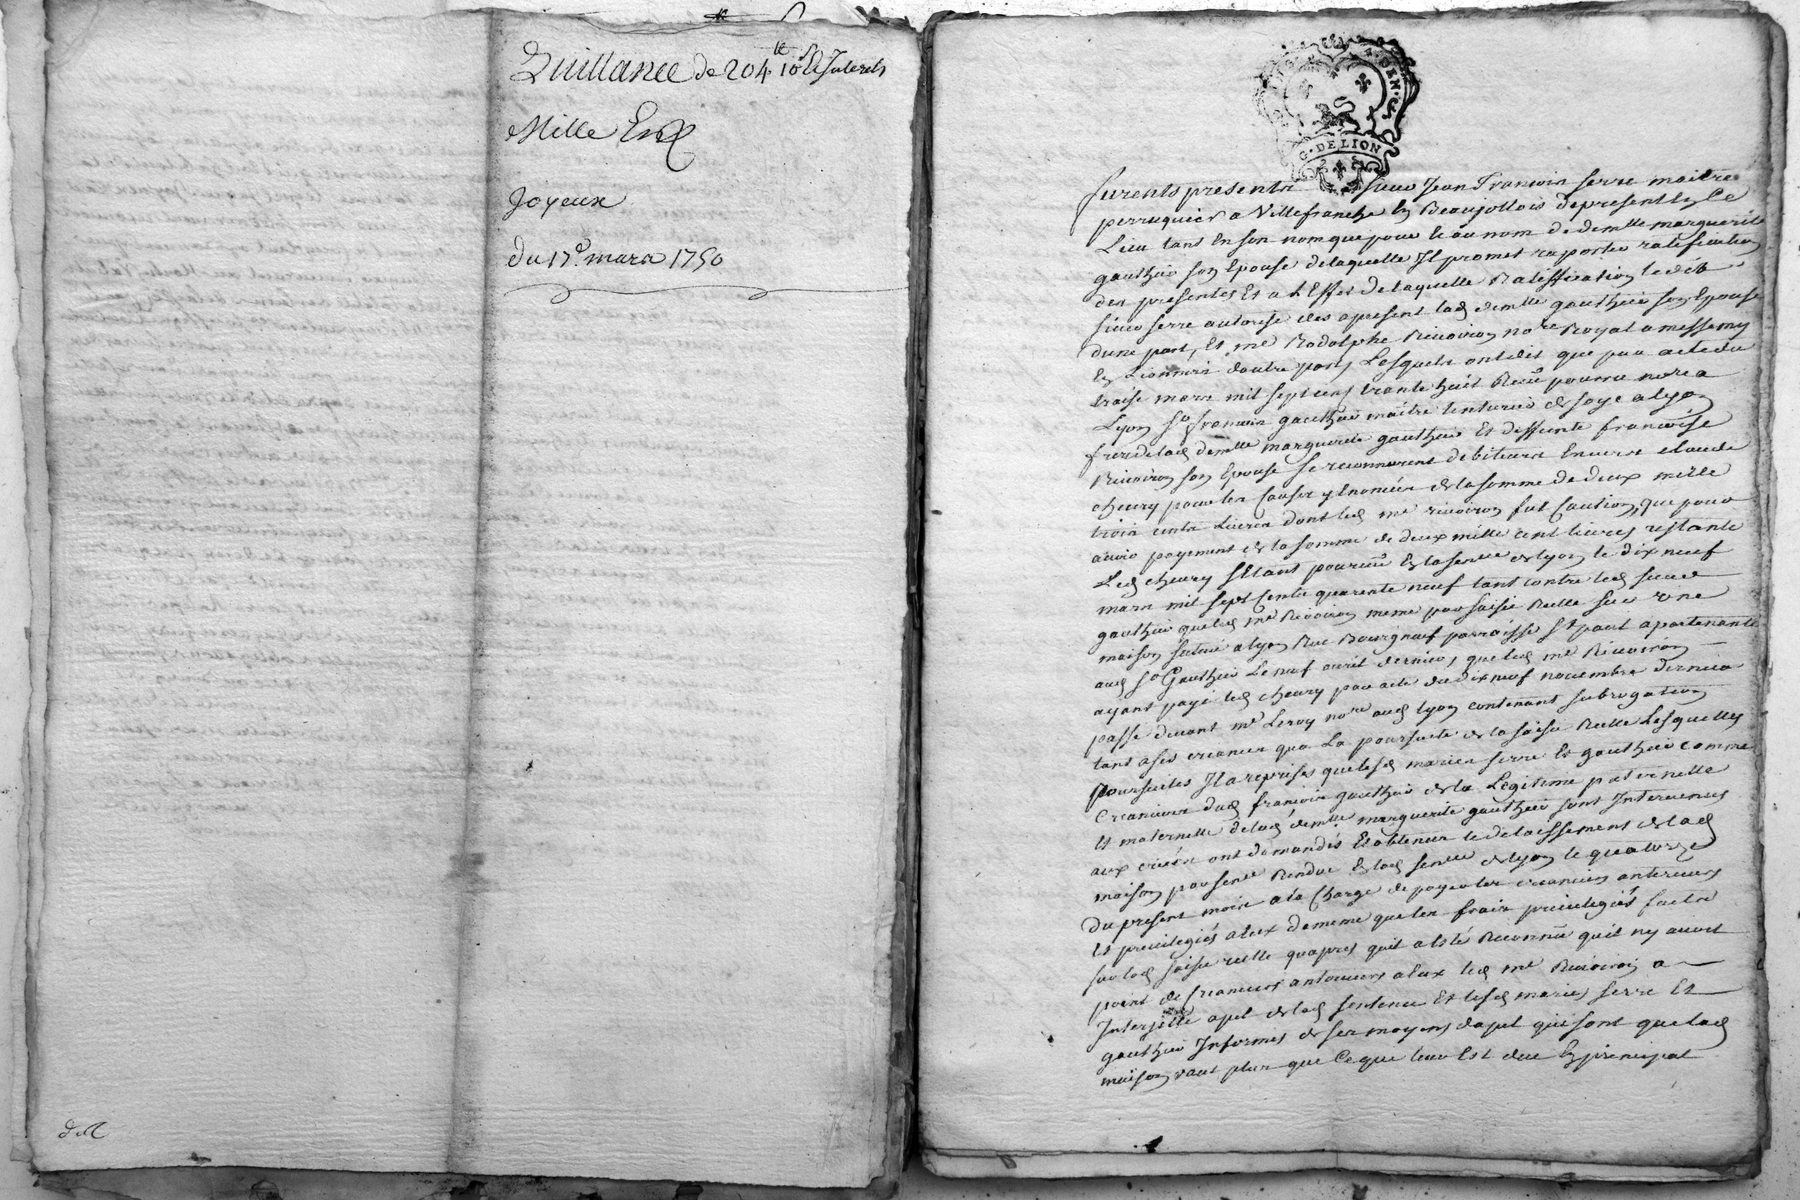 Quittance de 204 lt 10 s d'Interets
Mille En
Joyeux
du 17e. mars 1750
G. DE LION
furents presents sieur Jean Francois Serre maitre
perruquier a Villefranche En Beaujollois depresent En Ce
Lieu tant En son nom que pour Et au nom de demlle marguerite
gauthier son Epouse delaquelle Il promet raporter ratification
des presentes Et a l'Effet delaquelle Ratiffication ledit
sieur serre autorise des apresent lad demlle gauthier son Epouse
dune part, Et me Rodolphe Rivoiron nore Royal a messemy
En Lionnois dautre part, Lesquels ont dit que par acte du
traise mars mil sept cens trante huit Receu pourra nore a
Lyon Sr francois gauthier maitre teinturier de soye a Lyon
frere delad demlle marguerite gauthier Et deffunte francoise
Rivoiron son Epouse se reconnurent debiteurs Envers claude
cheury pour les causes y Enoncées de la somme de deux mille
trois cents Livres dont led me rivoiron fut Caution, que pour
avoir payement de la somme de deux mille cent livres restante
Led cheury s'Etant pourvu En la senee de lyon le dix neuf
mars mil sept Cents quarante neuf tant contre led sieur
gauthier que led me Rivoiron meme par saisie Reelle sur une
maison scituée a lyon Rue Bourgneuf parroisse St paul apartenante
aud Sr Gauthier Le neuf avril dernier, que led me Rivoiron
ayant payé led cheury par acte du dix neuf novembre dernier
passé devant me Leroy nore aud lyon contenant subrogation
tant a ses creances qua La poursuite de la saisie Reelle Lesquelles
poursuites Il a reprises que lesd mariés serre Et gauthier comme
Creanciers dud francois gauthier de la Legitime paternelle
Et maternelle delad demlle marguerite gauthier sont Intervenus
aux criées ont demandés Et obtenus le delaissement de lad
maison par senee Rendue En lad senee de lyon le quatorze
du present mois a la Charge de payer les creanciers anterieurs
Et privilegiés a Eux de meme que les frais privilegiés faits
sur lad saisie reelle quapres quil a Eté Reconnu quil ny avoit
point de Creanciers anterieurs a Eux led me Rivoiron a
Interjetté apel de lad sentence Et lesd mariés serre Et
gauthier Informés de ses moyens dapel qui sont que lad
maison vaut plus que Ce que leur Est due En principal